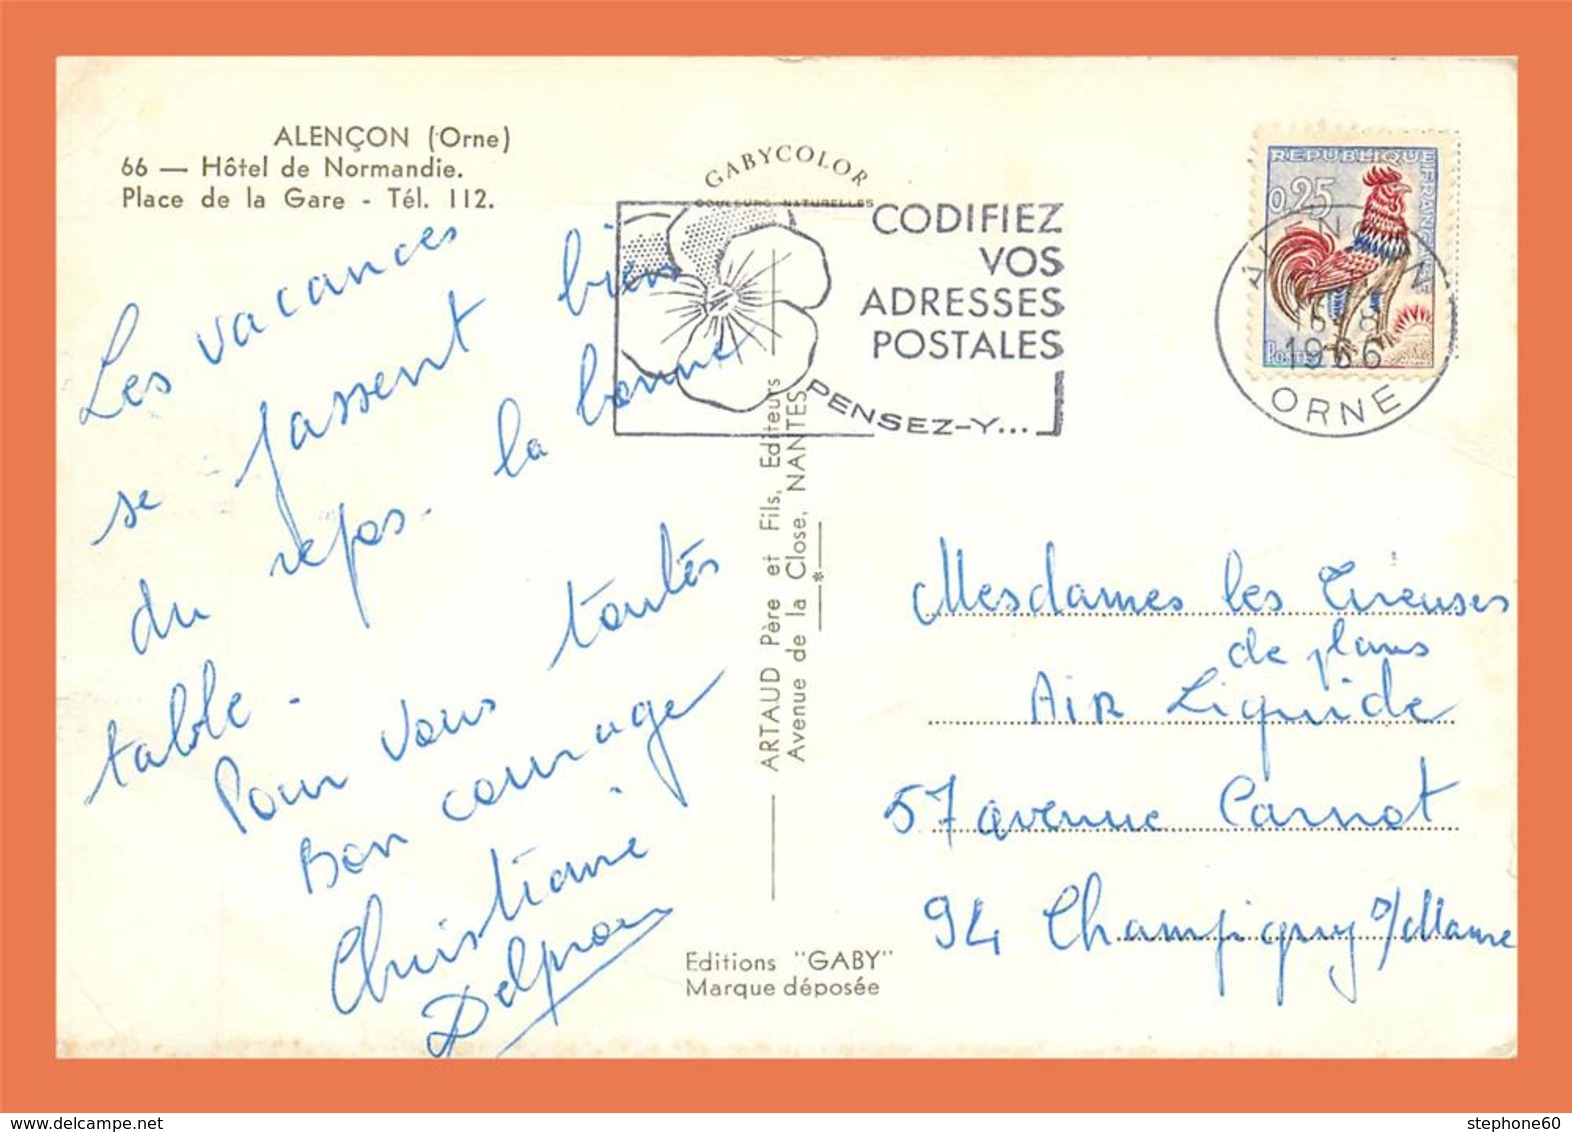 ALENÇON (Orne)
66 — Hôtel de Normandie.
Place de la Gare - Tél. 112.
GABYCOLOR
COULEURS NATURELLES
CODIFIEZ
VOS
ADRESSES
POSTALES
PENSEZ-Y...
REPUBLIQUE FRANCAISE
0,25
POSTES
1966
ORNE
Les vacances
se passent bien
du repos. la bonne
table.
Pour vous toutes
Bon courage
Christiane
ARTAUD Père et Fils, Editeurs
Avenue de la Close, NANTES
*
Mesdames les Tireuses
de plans
AIR Liquide
57 avenue Carnot
94 Champigny s/Marne
Editions "GABY"
Marque déposée
stephone60